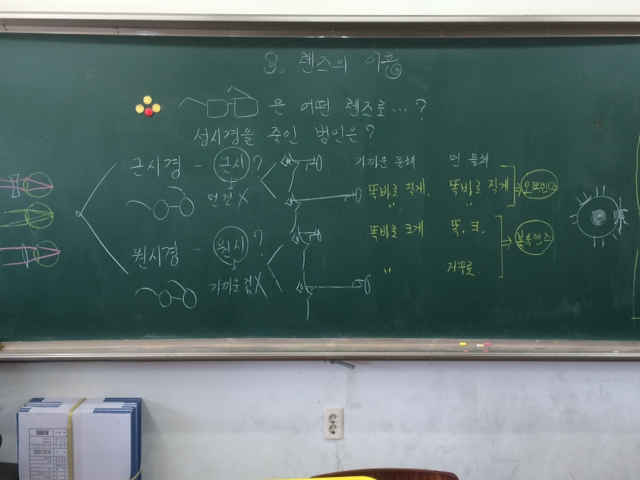 3. 렌즈의 이용
은 어떤 렌즈로…?
성시경을 죽인 범인은?
근시경 - 근시?
먼건X
가까운 물체 먼 물체
똑바로 작게. 똑바로 작게
" "
⇒ 오목렌즈
원시경 - 원시?
가까운 겁X
똑바로 크게 똑, 크.
" 거꾸로.
⇒ 볼록렌즈